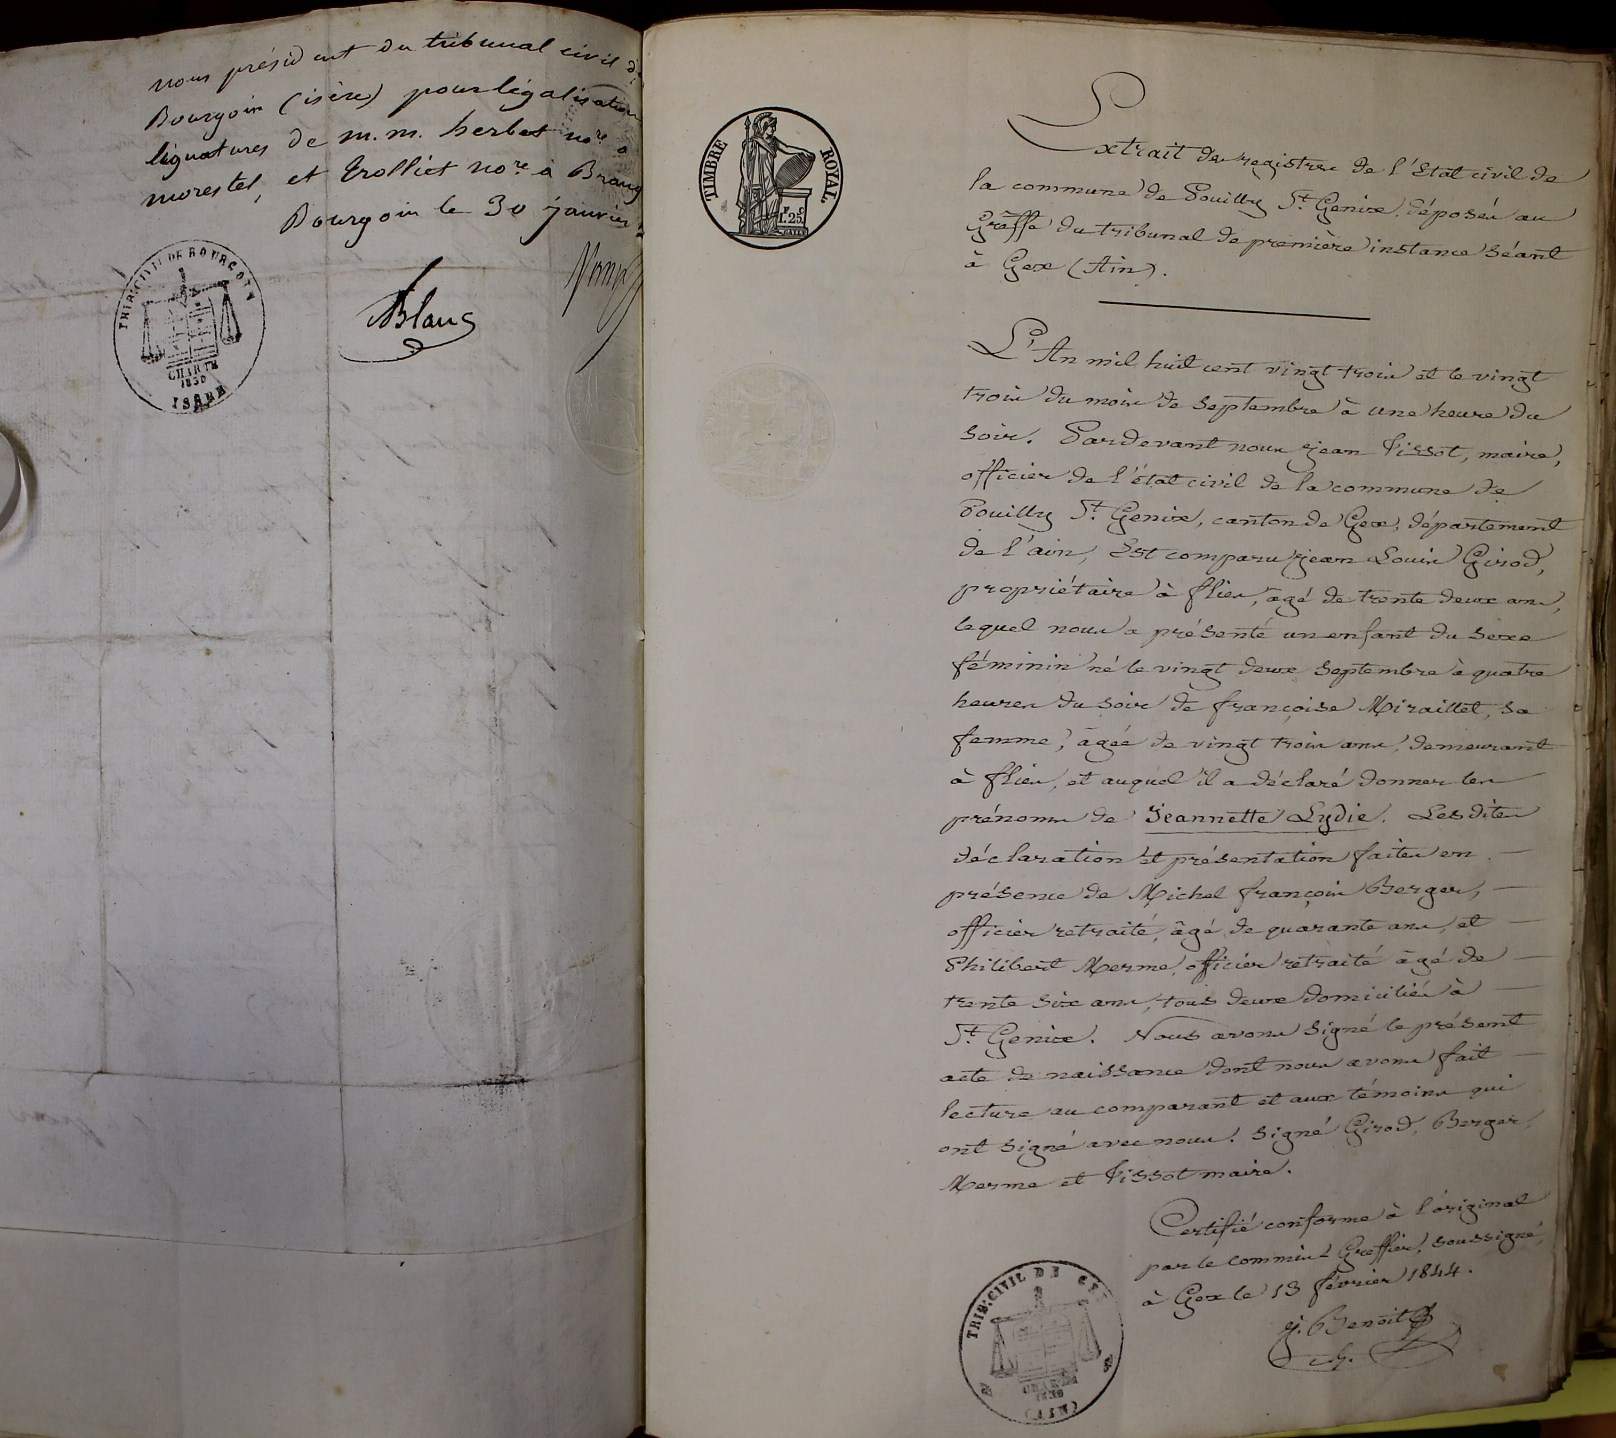 nous président du tribunal civil de
Bourgoin (isère) pour légalisation
signatures de m.m. herbet nore à
morestel, et Trolliet nore à Brang
Bourgoin le 30 janvier
TRIB: CIVIL DE BOURGOIN
CHARTE
1830
ISERE
Blanc
TIMBRE ROYAL.
F. C.
1.25.
Extrait du registre de l'Etat civil de
la commune de Pouilly St. Genix, déposés au
Greffe du tribunal de première instance séant
à Gex (Ain).
L'An mil huit cent vingt trois et le vingt
trois du mois de septembre à une heure du
soir. Pardevant nous jean Tissot, maire,
officier de l'état civil de la commune de
Pouilly St. Genix, canton de Gex, département
de l'ain, Est comparu jean Louis Girod,
propriétaire à flies, âgé de trente deux ans,
lequel nous a présenté un enfant du sexe
féminin né le vingt deux septembre à quatre
heures du soir de françoise Miraillet, sa
femme, âgée de vingt trois ans, demeurant
à flies, et auquel il a déclaré donner les
prénoms de Jeannette Lydie. Lesdites
déclaration et présentation faites en
présence de Michel françois Berger,
officier retraité, âgé de quarante ans, et
Philibert Merme, officier retraité âgé de
trente six ans, tous deux domiciliés à
St. Genix. Nous avons signé le présent
acte de naissance dont nous avons fait
lecture au comparant et aux témoins qui
ont signé avec nous. signé Girod, Berger,
Merme et Tissot maire.
Certifié conforme à l'original
par le commis Greffier, soussigné,
à Gex le 13 février 1844.
j. Benoit
TRIB: CIVIL DE GEX
CHARTE
1830
(AIN)